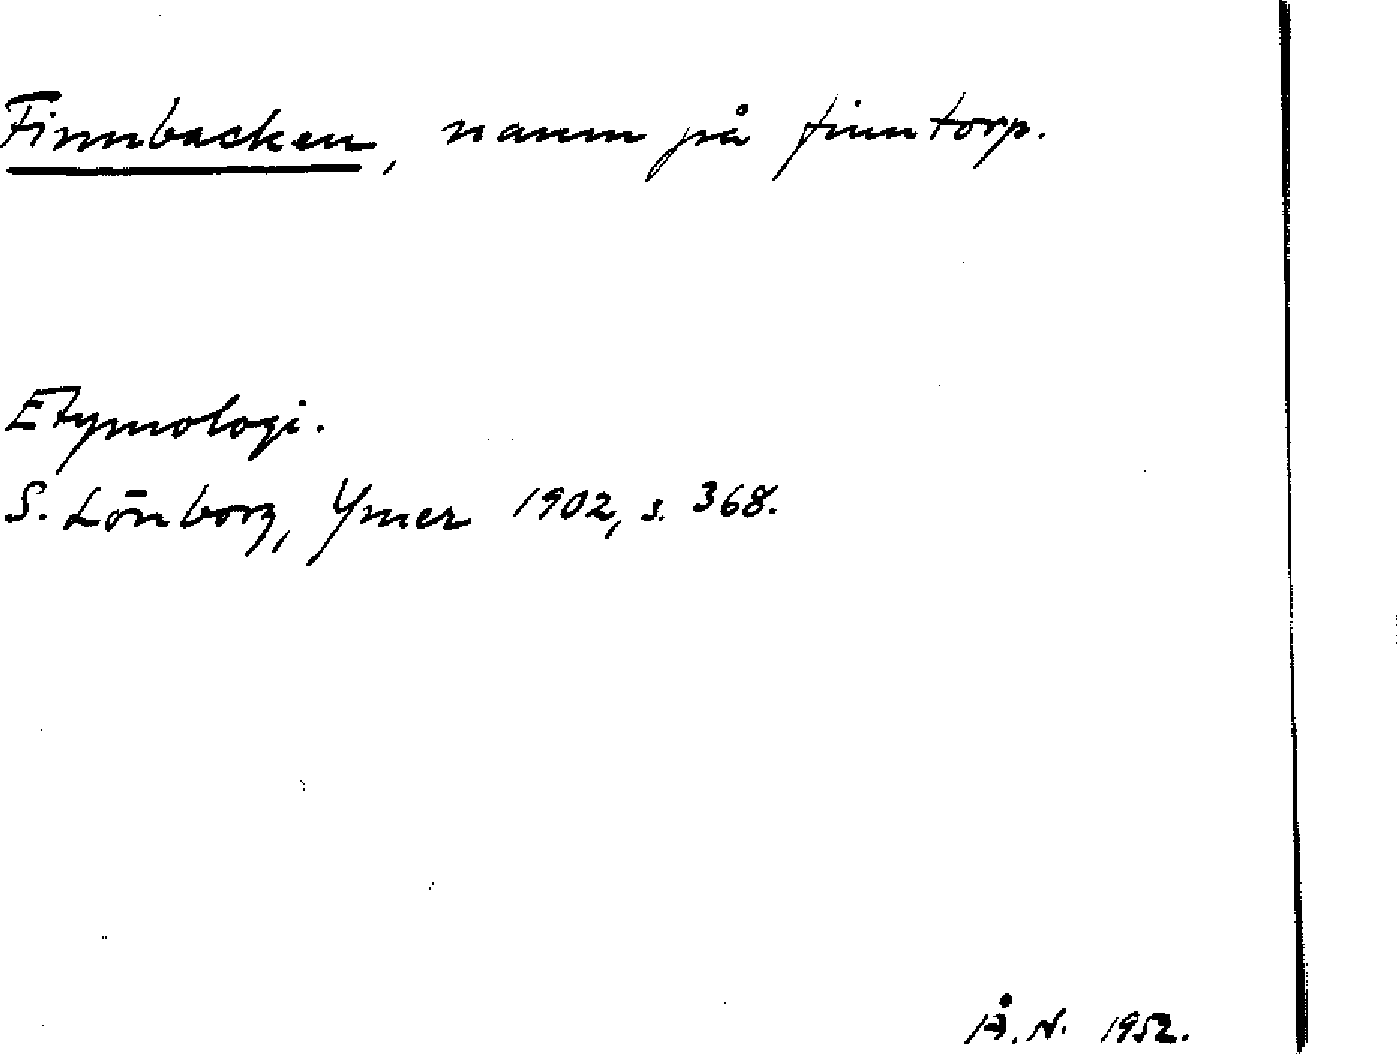 Finnbacken, namn på finntorp.
Etymologi.
S. Lönborg, Ymer 1902, s. 368.
Å. N. 1952.